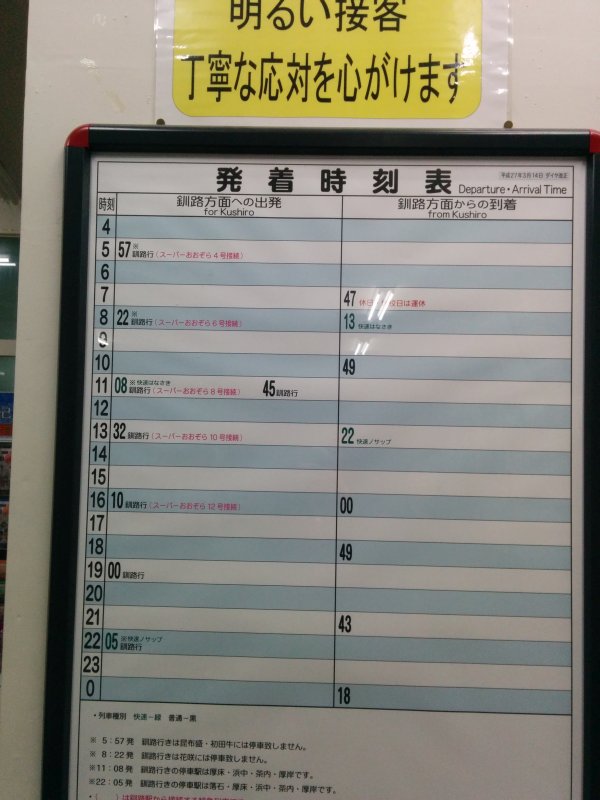 明るい接客
丁寧な応対を心がけます
発着時刻表 Departure・Arrival Time
平成27年3月14日 ダイヤ改正
時刻 釧路方面への出発 for Kushiro 釧路方面からの到着 from Kushiro
4
5 57 ※ 釧路行(スーパーおおぞら4号接続)
6
7 47 休日 校日は運休
8 22 ※ 釧路行(スーパーおおぞら6号接続) 13 快速はなさき
9
10 49
11 08 ※快速はなさき 釧路行(スーパーおおぞら8号接続) 45 釧路行
12
13 32 釧路行(スーパーおおぞら10号接続) 22 快速ノサップ
14
15
16 10 釧路行(スーパーおおぞら12号接続) 00
17
18 49
19 00 釧路行
20
21 43
22 05 ※快速ノサップ 釧路行
23
0 18
・列車種別 快速−緑 普通−黒
※ 5:57発 釧路行きは昆布盛・初田牛には停車致しません。
※ 8:22発 釧路行きは花咲には停車致しません。
※11:08発 釧路行きの停車駅は厚床・浜中・茶内・厚岸です。
※22:05発 釧路行きの停車駅は落石・厚床・浜中・茶内・厚岸です。